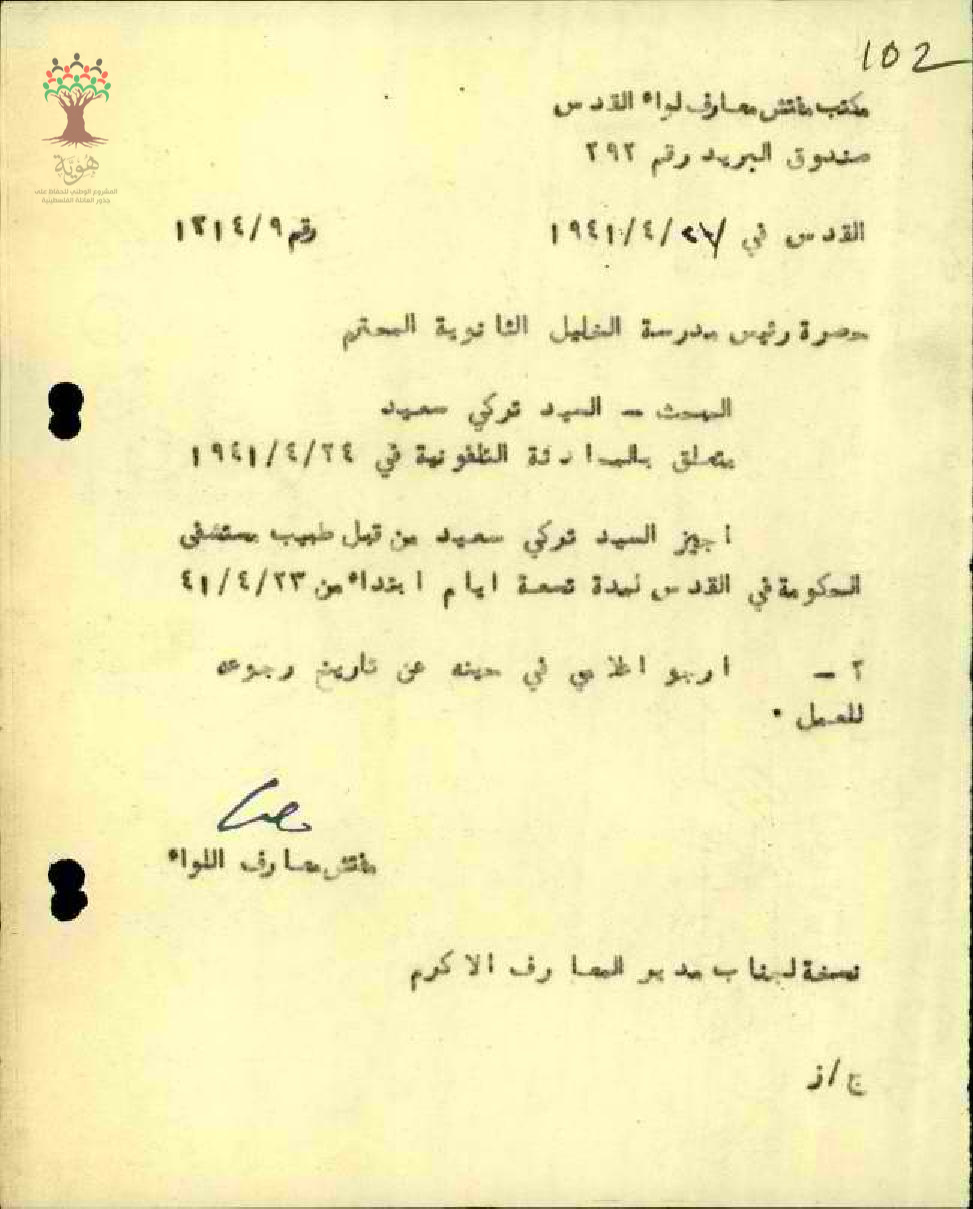 102
هوية
المشروع الوطني للحفاظ على
جذور العائلة الفلسطينية
مكتب مفتش معارف لواء القدس
صندوق البريد رقم ٢٩٢
القدس في /٤/١٩٤١ رقم ١٣١٤/٩
حضرة رئيس مدرسة الخليل الثانوية المحترم
البحث - السيد تركي سعيد
يتعلق بالمحادثة التلفونية في ٢٤/٤/١٩٤١
اجيز السيد تركي سعيد من قبل طبيب مستشفى
الحكومة في القدس لمدة تسعة ايام ابتداء من ٢٣/٤/٤١
٢ - ارجو اعلامي في حينه عن تاريخ رجوعه
للعمل .
مفتش معارف اللواء
نسخة لجناب مدير المعارف الاكرم
ج/ز